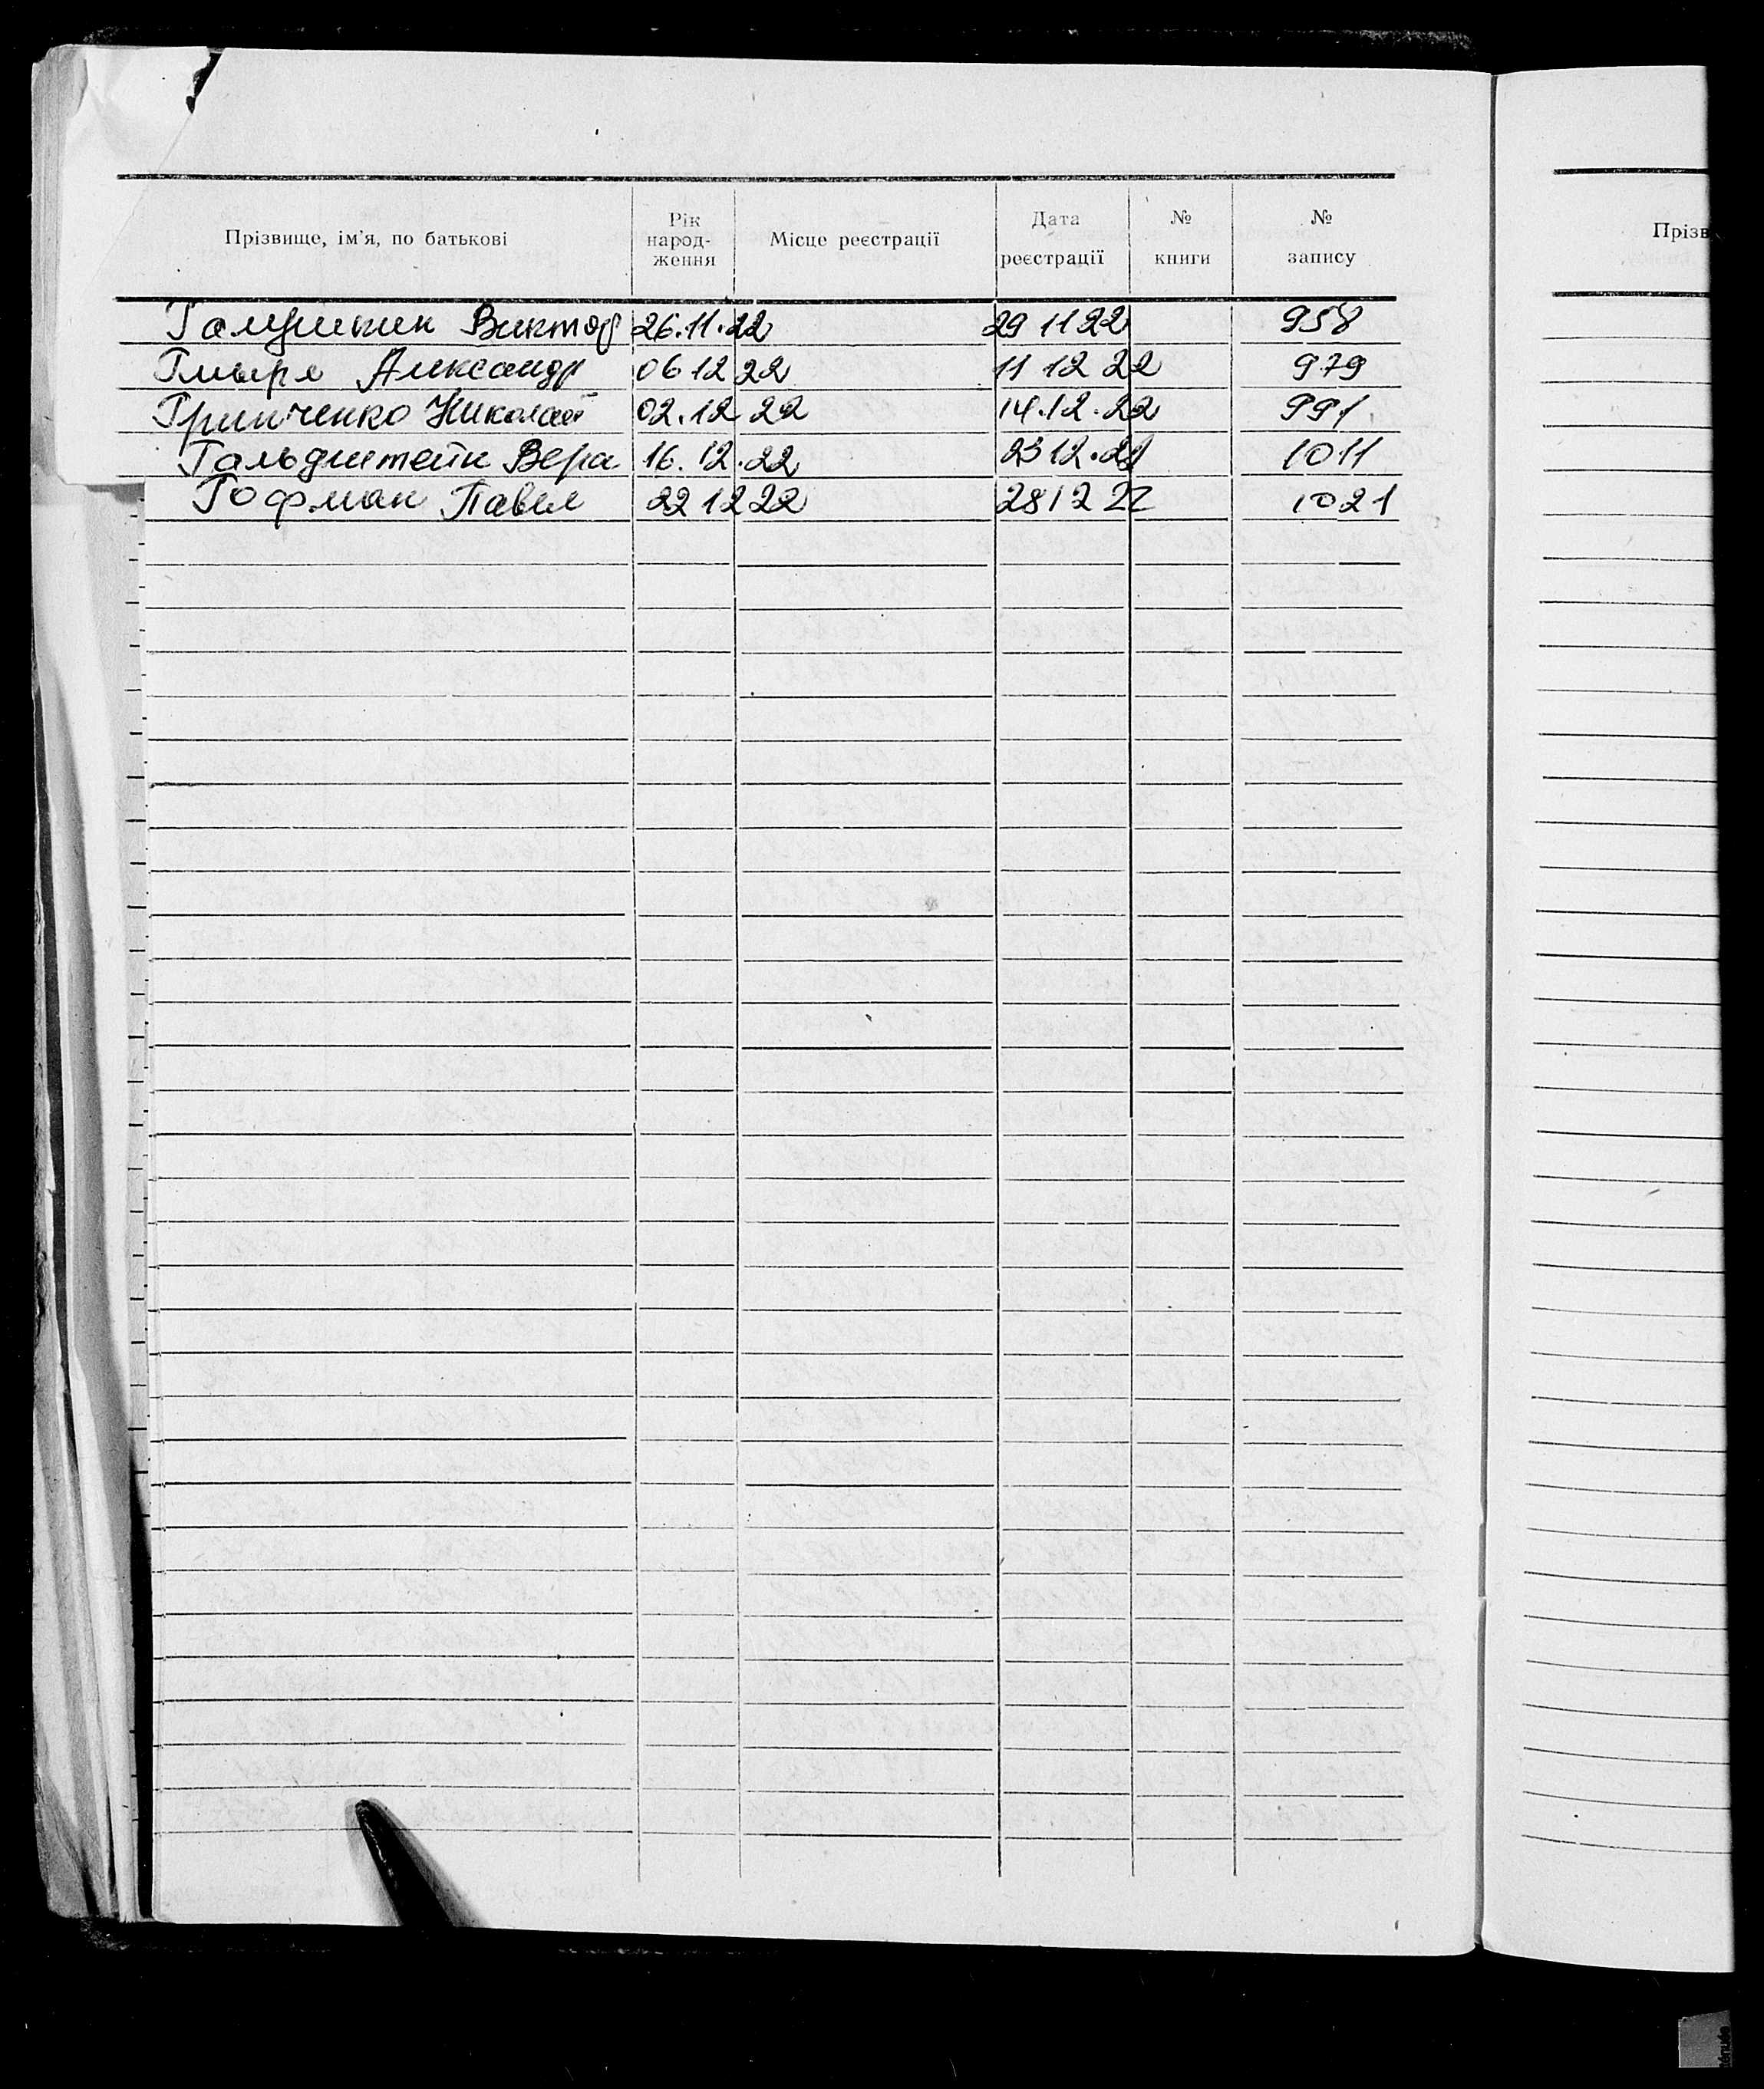 Прізвище, ім'я, по батькові Рік народ- ження Місце реєстрації Дата реєстрації № книги № запису
Галушкин Виктор 26.11.22 29 11 22 958
Гмыря Александр 06 12 22 11 12 22 979
Гринченко Николай 02.12 22 14.12.22 991
Гальдштейн Вера 16.12.22 23 12.22 1011
Гофман Павел 22 12 22 28 12 22 1021
Прізв